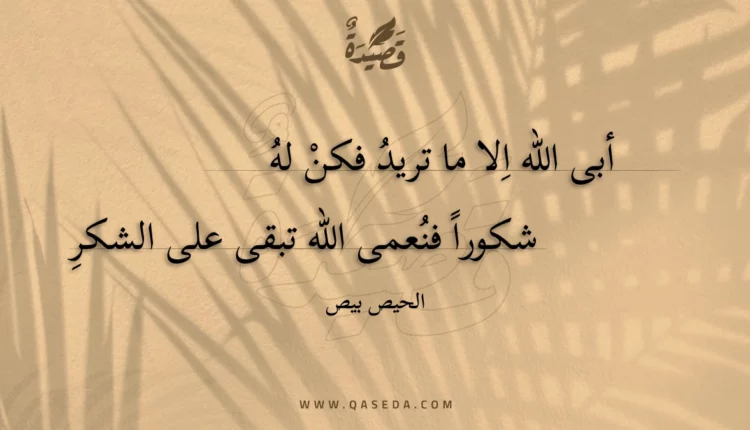 قَصِيْدَةٌ
أبى الله اِلا ما تريدُ فكنْ لهُ
شكوراً فنُعمى الله تبقى على الشكرِ
الحيص بيص
WWW.QASEDA.COM